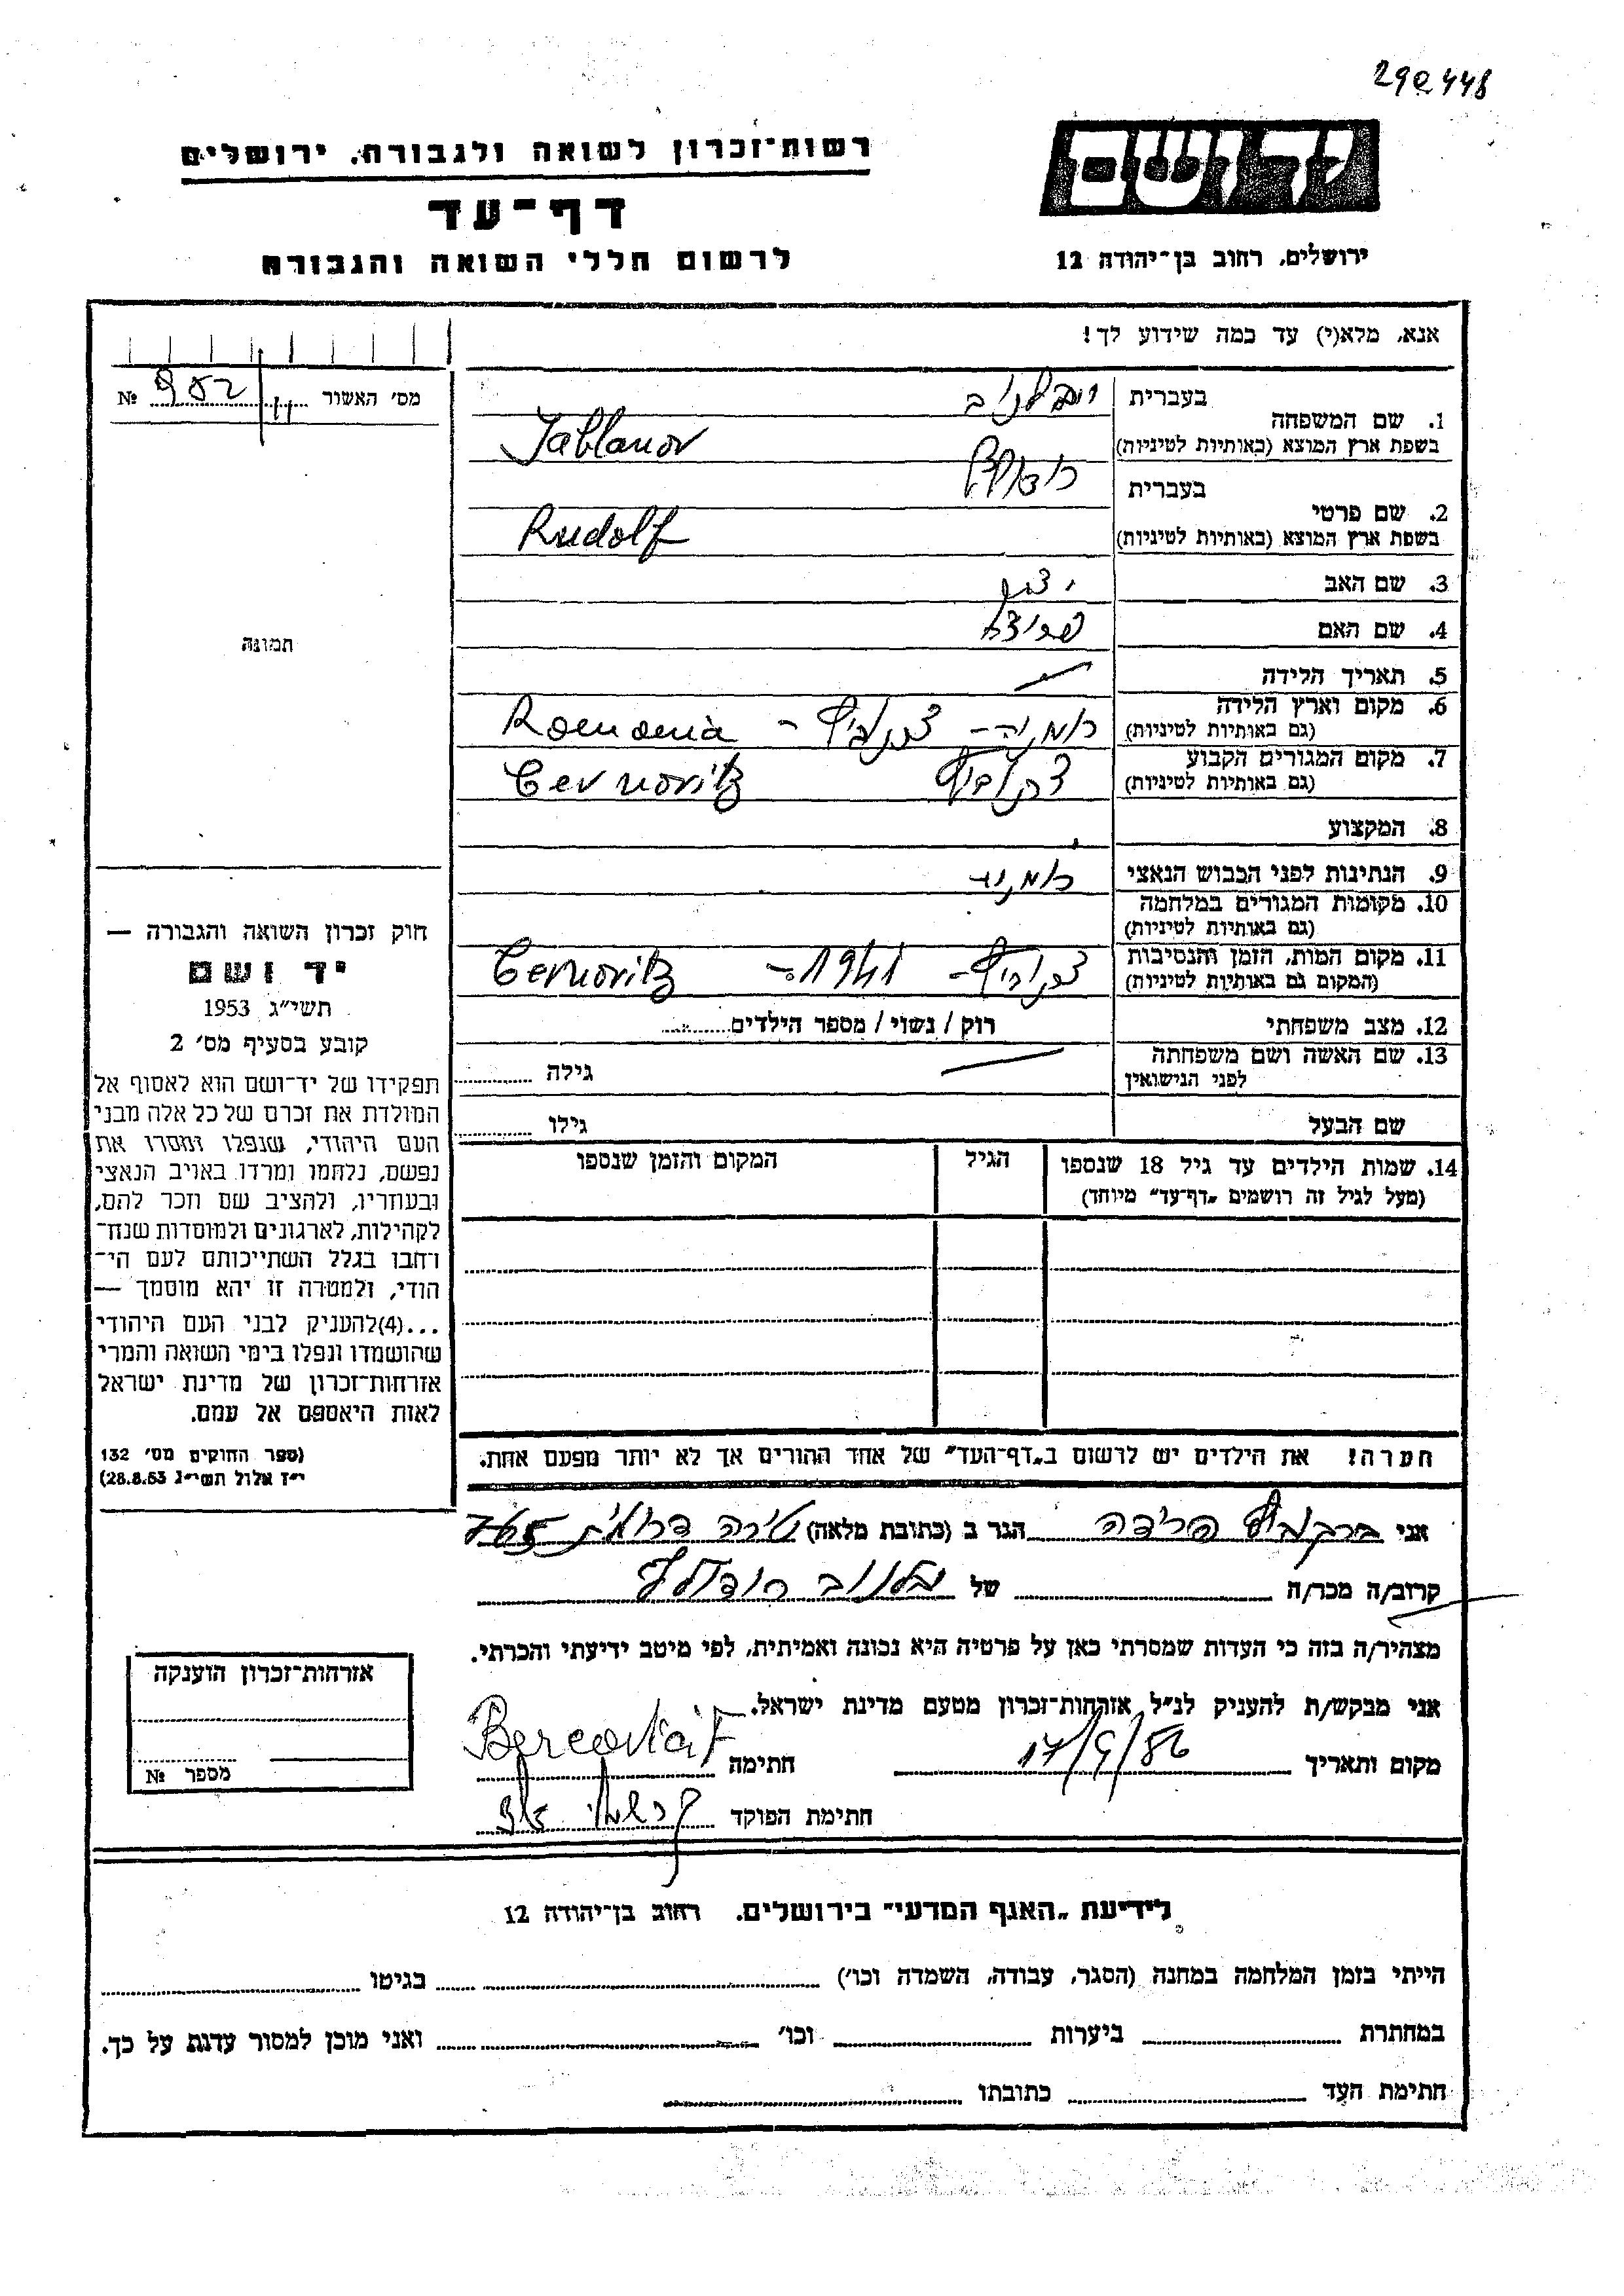 290448
רשות־זכרון לשואה ולגבורה, ירושלים
דף־עד
לרשום חללי השואה והגבורה
יד ושם
ירושלים, רחוב בן־יהודה 12
אנא, מלא(י) עד כמה שידוע לך!
מס׳ האשור № 952
1. שם המשפחה
בעברית
בשפת ארץ המוצא (באותיות לטיניות) Jablanov
2. שם פרטי
בעברית רודולף
בשפת ארץ המוצא (באותיות לטיניות) Rudolf
3. שם האב
4. שם האם
5. תאריך הלידה
6. מקום וארץ הלידה
(גם באותיות לטיניות) רומניה - צרנוביץ - Romania
7. מקום המגורים הקבוע
(גם באותיות לטיניות) צרנוביץ Cernovitz
8. המקצוע
9. הנתינות לפני הכבוש הנאצי רומניה
10. מקומות המגורים במלחמה
(גם באותיות לטיניות)
11. מקום המות, הזמן והנסיבות
(המקום גם באותיות לטיניות) צרנוביץ - 1941 - Cernovitz
12. מצב משפחתי רוק / נשוי / מספר הילדים
13. שם האשה ושם משפחתה
לפני הנישואין גילה
שם הבעל גילו
14. שמות הילדים עד גיל 18 שנספו הגיל המקום והזמן שנספו
(מעל לגיל זה רושמים „דף־עד״ מיוחד)
הערה! את הילדים יש לרשום ב„דף־העד״ של אחד ההורים אך לא יותר מפעם אחת.
תמונה
חוק זכרון השואה והגבורה —
יד ושם
תשי״ג 1953
קובע בסעיף מס׳ 2
תפקידו של יד־ושם הוא לאסוף אל
המולדת את זכרם של כל אלה מבני
העם היהודי, שנפלו ומסרו את
נפשם, נלחמו ומרדו באויב הנאצי
ובעוזריו, ולהציב שם וזכר להם,
לקהילות, לארגונים ולמוסדות שנח־
רחבו בגלל השתייכותם לעם הי־
הודי, ולמטרה זו יהא מוסמך —
...(4)להעניק לבני העם היהודי
שהושמדו ונפלו בימי השואה והמרי
אזרחות־זכרון של מדינת ישראל
לאות היאספם אל עמם.
(ספר החוקים מס׳ 132
י״ז אלול תשי״ג 28.8.53)
אני ברקוביץ פרידה הגר ב (כתובת מלאה) 765
קרוב/ה מכר/ה של יבלנוב רודולף
מצהיר/ה בזה כי העדות שמסרתי כאן על פרטיה היא נכונה ואמיתית, לפי מיטב ידיעתי והכרתי.
אני מבקש/ת להעניק לנ״ל אזרחות־זכרון מטעם מדינת ישראל.
מקום ותאריך 17/9/56 חתימה
חתימת הפוקד
אזרחות־זכרון הוענקה
מספר №
לידיעת „האגף המדעי״ בירושלים, רחוב בן־יהודה 12
הייתי בזמן המלחמה במחנה (הסגר, עבודה, השמדה וכו׳) בגיטו
במחתרת ביערות וכו׳ ואני מוכן למסור עדות על כך.
חתימת העד כתובתו